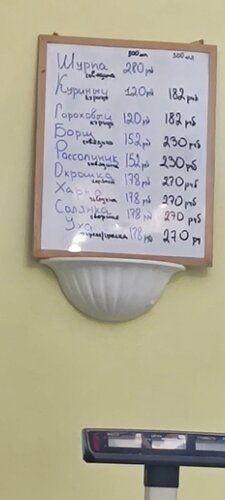 300мл 500мл
Шурпа говядина 280 руб
Куриный курица 120 руб 182 руб
Гороховый курица 120 руб 182 руб
Борщ говядина 152 руб 230 руб
Рассольник говядина 152 руб 230 руб
Окрошка 178 руб 270 руб
Харчо говядина 178 руб 270 руб
Солянка 178 руб 270 руб
Уха 178 руб 270 ру